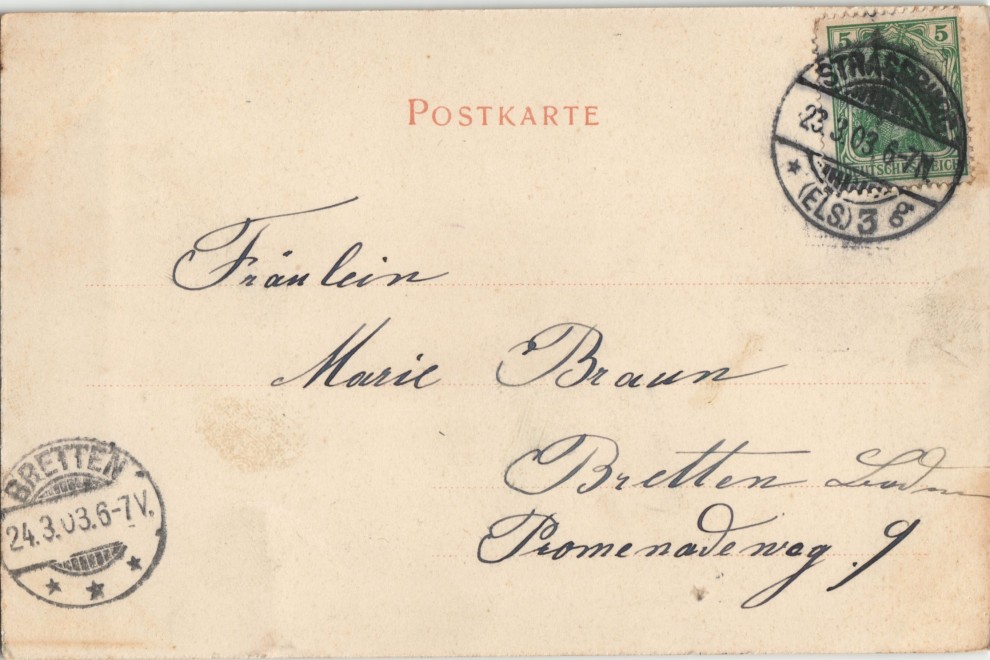 POSTKARTE
5 5
DEUTSCHES REICH
STRASSBURG
23.3.03.6-7N.
(ELS.) 3 g
Fräulein
Marie Braun
Bretten Baden
Promenadeweg 9
BRETTEN
24.3.03.6-7V.